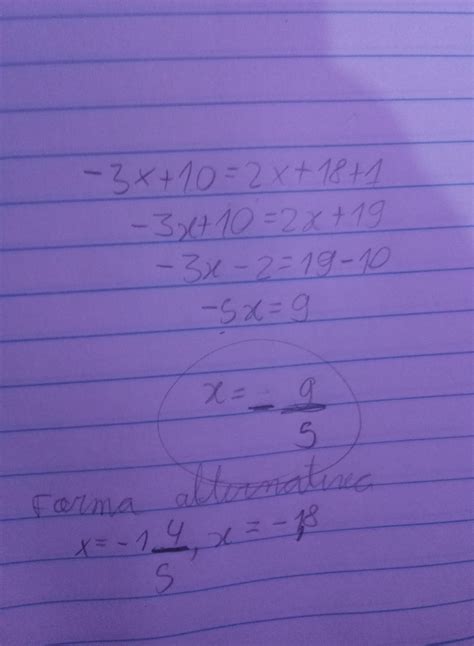 -3x+10=2x+18+1
-3x+10=2x+19
-3x-2=19-10
-5x=9
x=-9/5
Forma alternativa
x=-1 4/5, x=-1,8